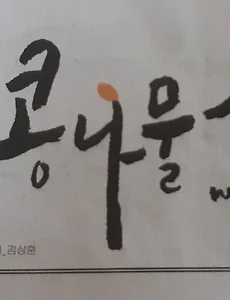 콩나물
김상훈